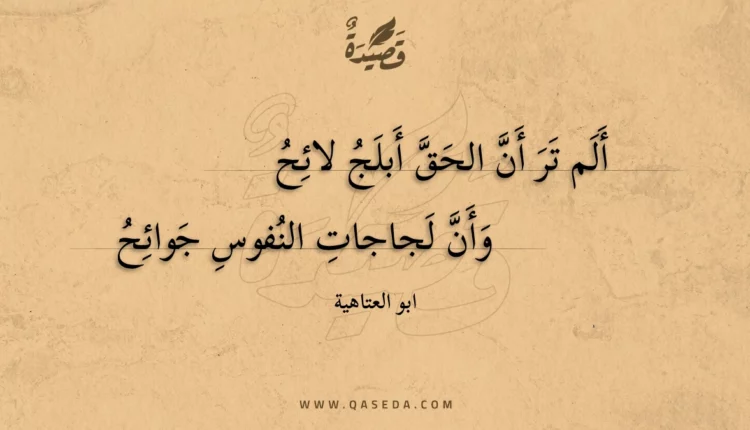 قَصِيْدَةٌ
أَلَم تَرَ أَنَّ الحَقَّ أَبلَجُ لائِحُ
وَأَنَّ لَجاجاتِ النُفوسِ جَوائِحُ
ابو العتاهية
WWW.QASEDA.COM